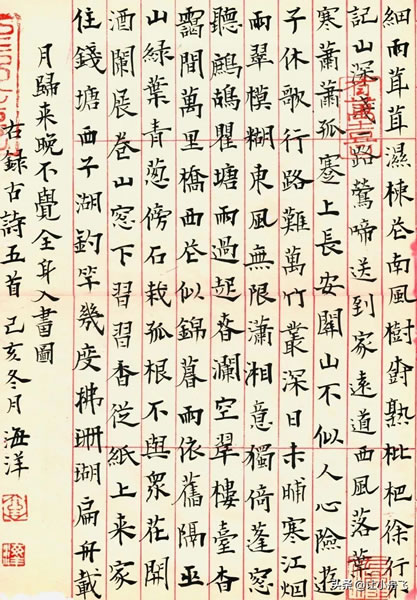 細雨茸茸濕楝花南風樹樹熟枇杷徐行不
記山深淺一路鶯啼送到家遠道西風落葉
寒蕭蕭孤蹇上長安關山不似人心險遊
子休歌行路難萬竹叢深日未晡寒江烟
雨翠模糊東風無限瀟湘意獨倚蓬窓
聽鷓鴣瞿塘雨過起春瀾空翠樓臺杳
靄間萬里橋西花似錦暮雨依舊隔巫
山綠葉青葱傍石栽孤根不與衆花開
酒闌展卷山窓下習習香從紙上来家
住錢塘西子湖釣竿幾度拂珊瑚扁舟載
月歸来晚不覺全身入畫圖
右錄古詩五首 己亥冬月 海洋
头条 @